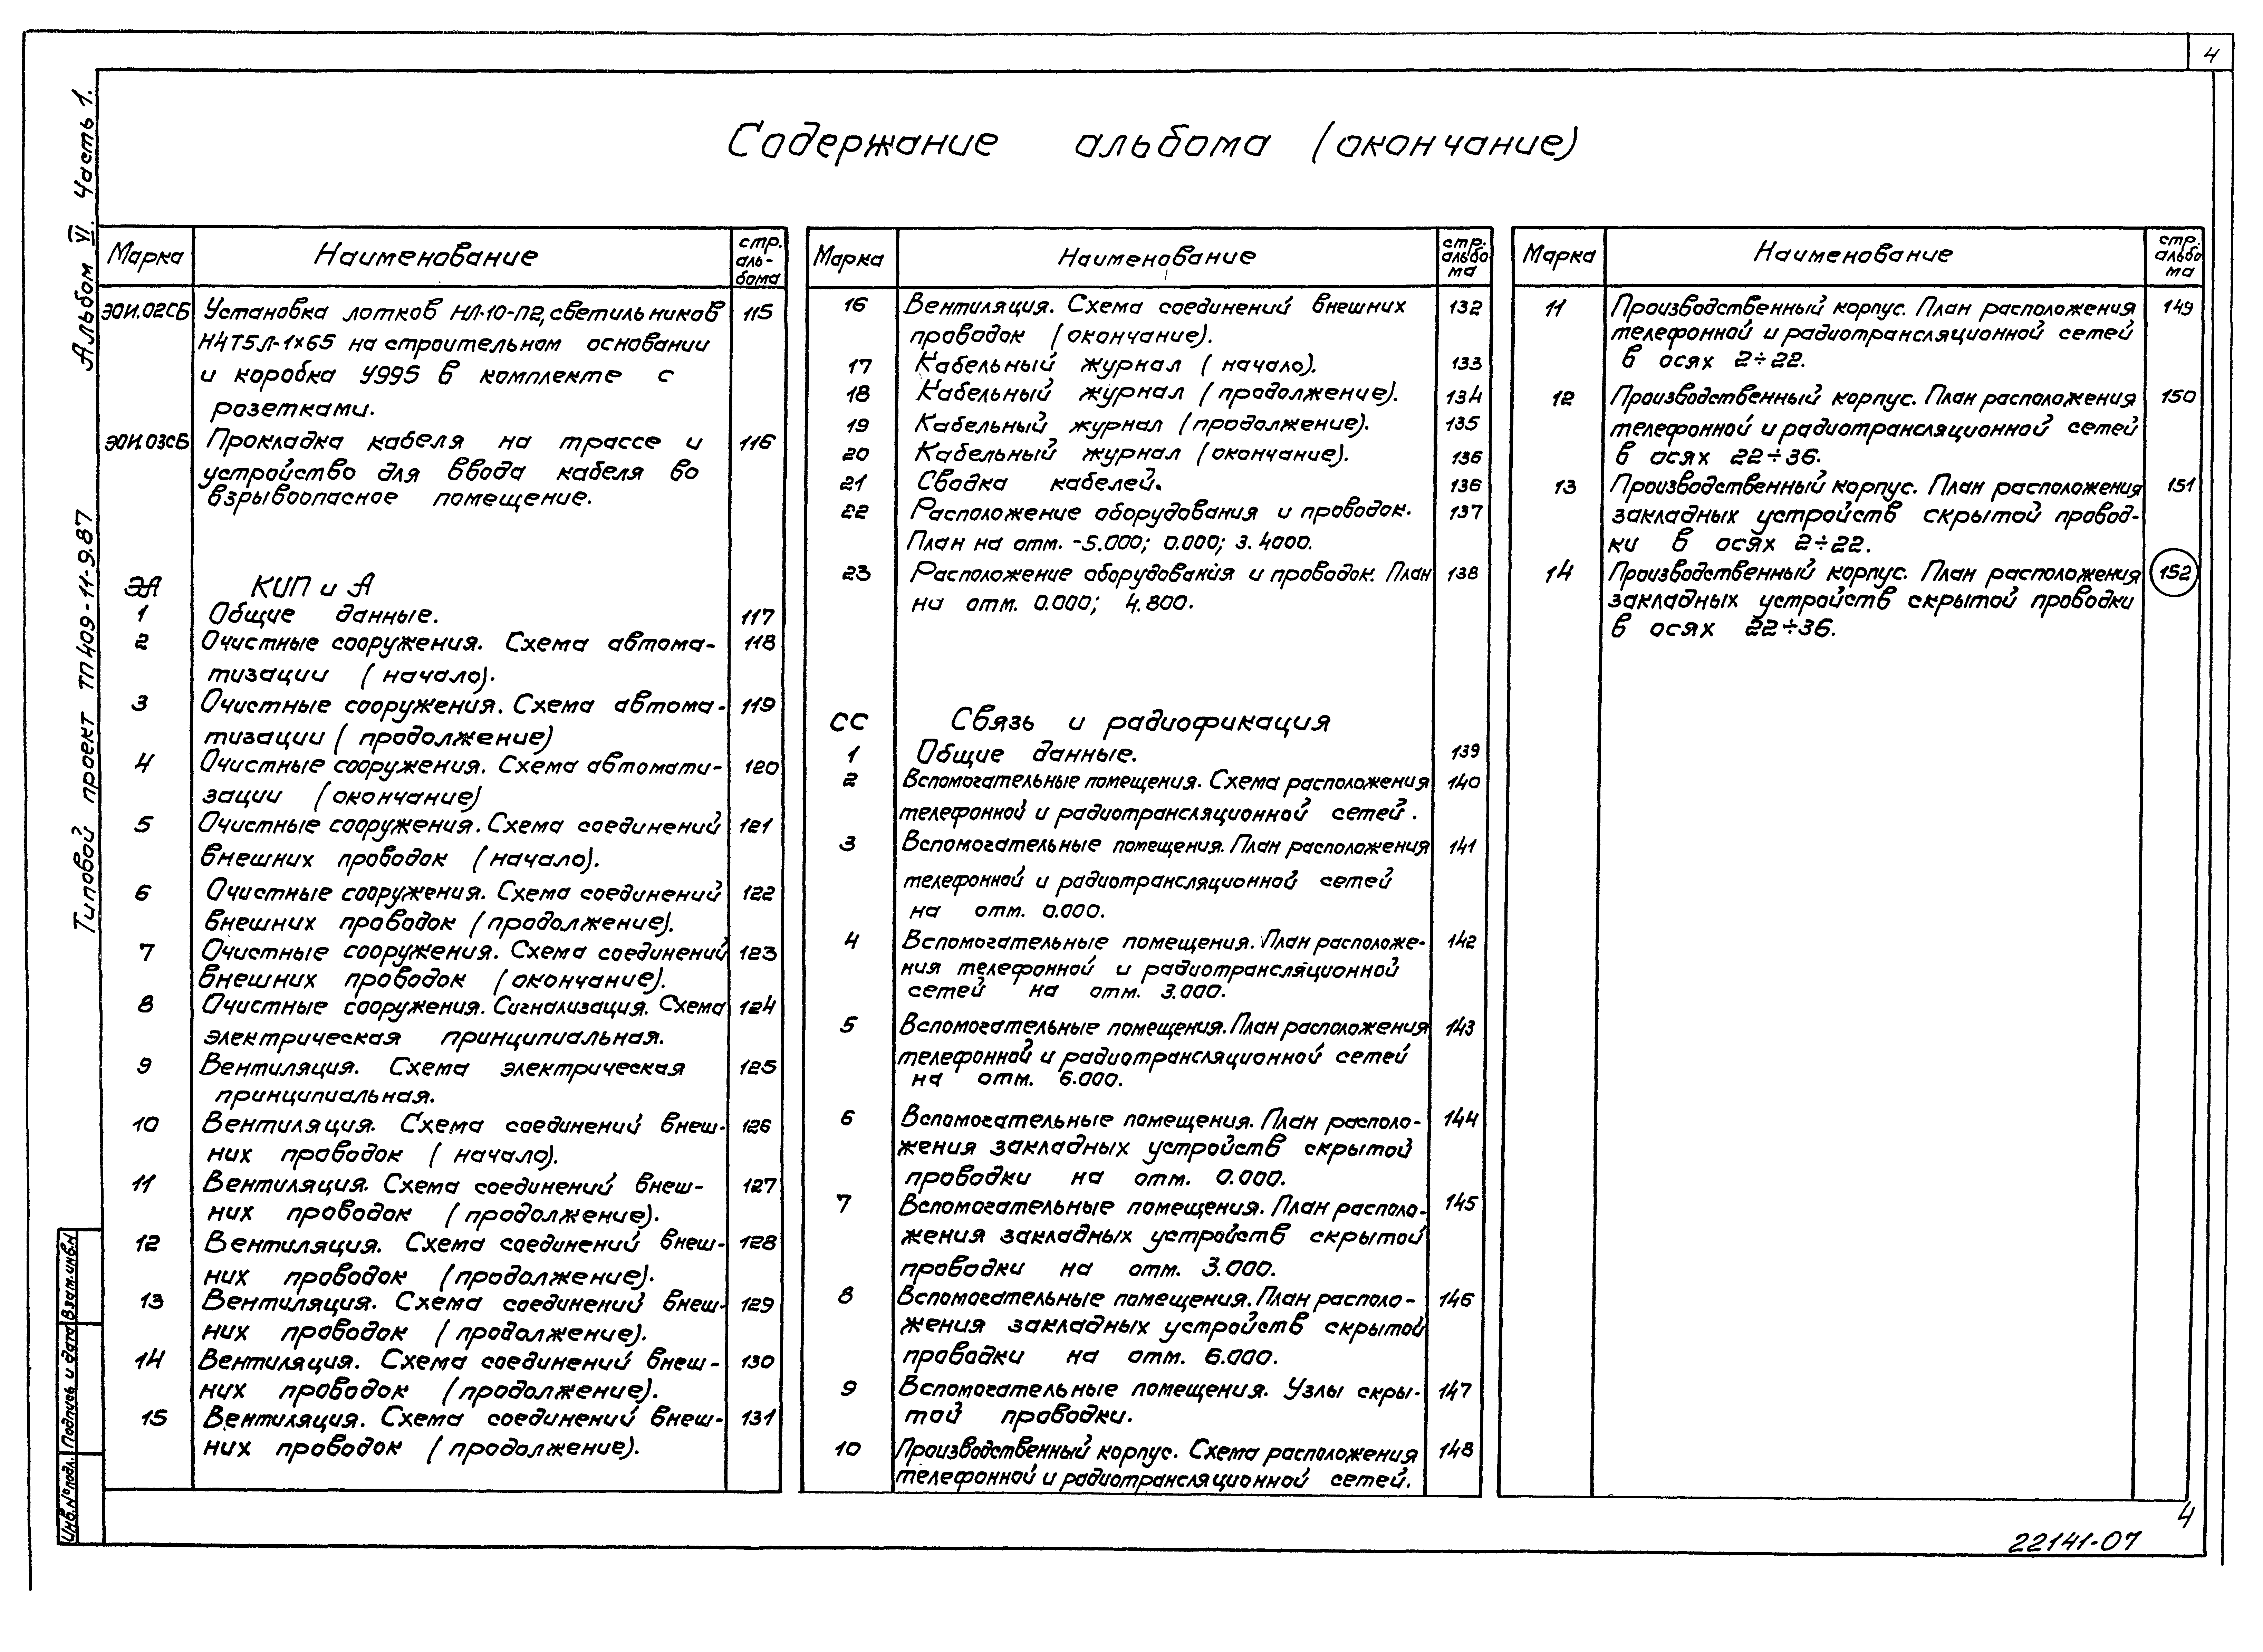 4
Содержание альбома (окончание)
Альбом VI. Часть 1.
Типовой проект ТП 409-11-9.87
Марка Наименование стр. аль- бома
ЭОИ.02СБ Установка лотков НЛ-10-П2, светильников 115
Н4Т5Л-1×65 на строительном основании
и коробка У995 в комплекте с
розетками.
ЭОИ.03СБ Прокладка кабеля на трассе и 116
устройство для ввода кабеля во
взрывоопасное помещение.
ЭА КИП и А
1 Общие данные. 117
2 Очистные сооружения. Схема автома- 118
тизации (начало).
3 Очистные сооружения. Схема автома- 119
тизации (продолжение)
4 Очистные сооружения. Схема автомати- 120
зации (окончание)
5 Очистные сооружения. Схема соединений 121
внешних проводок (начало).
6 Очистные сооружения. Схема соединений 122
внешних проводок (продолжение).
7 Очистные сооружения. Схема соединений 123
внешних проводок (окончание).
8 Очистные сооружения. Сигнализация. Схема 124
электрическая принципиальная.
9 Вентиляция. Схема электрическая 125
принципиальная.
10 Вентиляция. Схема соединений внеш- 126
них проводок (начало).
11 Вентиляция. Схема соединений внеш- 127
них проводок (продолжение).
12 Вентиляция. Схема соединений внеш- 128
них проводок (продолжение).
13 Вентиляция. Схема соединений внеш- 129
них проводок (продолжение).
14 Вентиляция. Схема соединений внеш- 130
них проводок (продолжение).
15 Вентиляция. Схема соединений внеш- 131
них проводок (продолжение).
Марка Наименование стр. альбо ма
16 Вентиляция. Схема соединений внешних 132
проводок (окончание).
17 Кабельный журнал (начало). 133
18 Кабельный журнал (продолжение). 134
19 Кабельный журнал (продолжение). 135
20 Кабельный журнал (окончание). 136
21 Сводка кабелей. 136
22 Расположение оборудования и проводок. 137
План на отм. -5.000; 0.000; 3.4000.
23 Расположение оборудования и проводок. План 138
на отм. 0.000; 4.800.
СС Связь и радиофикация
1 Общие данные. 139
2 Вспомогательные помещения. Схема расположения 140
телефонной и радиотрансляционной сетей.
3 Вспомогательные помещения. План расположения 141
телефонной и радиотрансляционной сетей
на отм. 0.000.
4 Вспомогательные помещения. План расположе- 142
ния телефонной и радиотрансляционной
сетей на отм. 3.000.
5 Вспомогательные помещения. План расположения 143
телефонной и радиотрансляционной сетей
на отм. 6.000.
6 Вспомогательные помещения. План располо- 144
жения закладных устройств скрытой
проводки на отм. 0.000.
7 Вспомогательные помещения. План располо- 145
жения закладных устройств скрытой
проводки на отм. 3.000.
8 Вспомогательные помещения. План располо- 146
жения закладных устройств скрытой
проводки на отм. 6.000.
9 Вспомогательные помещения. Узлы скры- 147
той проводки.
10 Производственный корпус. Схема расположения 148
телефонной и радиотрансляционной сетей.
Марка Наименование стр. альбо ма
11 Производственный корпус. План расположения 149
телефонной и радиотрансляционной сетей
в осях 2÷22.
12 Производственный корпус. План расположения 150
телефонной и радиотрансляционной сетей
в осях 22÷36.
13 Производственный корпус. План расположения 151
закладных устройств скрытой провод-
ки в осях 2÷22.
14 Производственный корпус. План расположения 152
закладных устройств скрытой проводки
в осях 22÷36.
Инв.№подл. Подпись и дата Взам.инв.N
4
22141-07